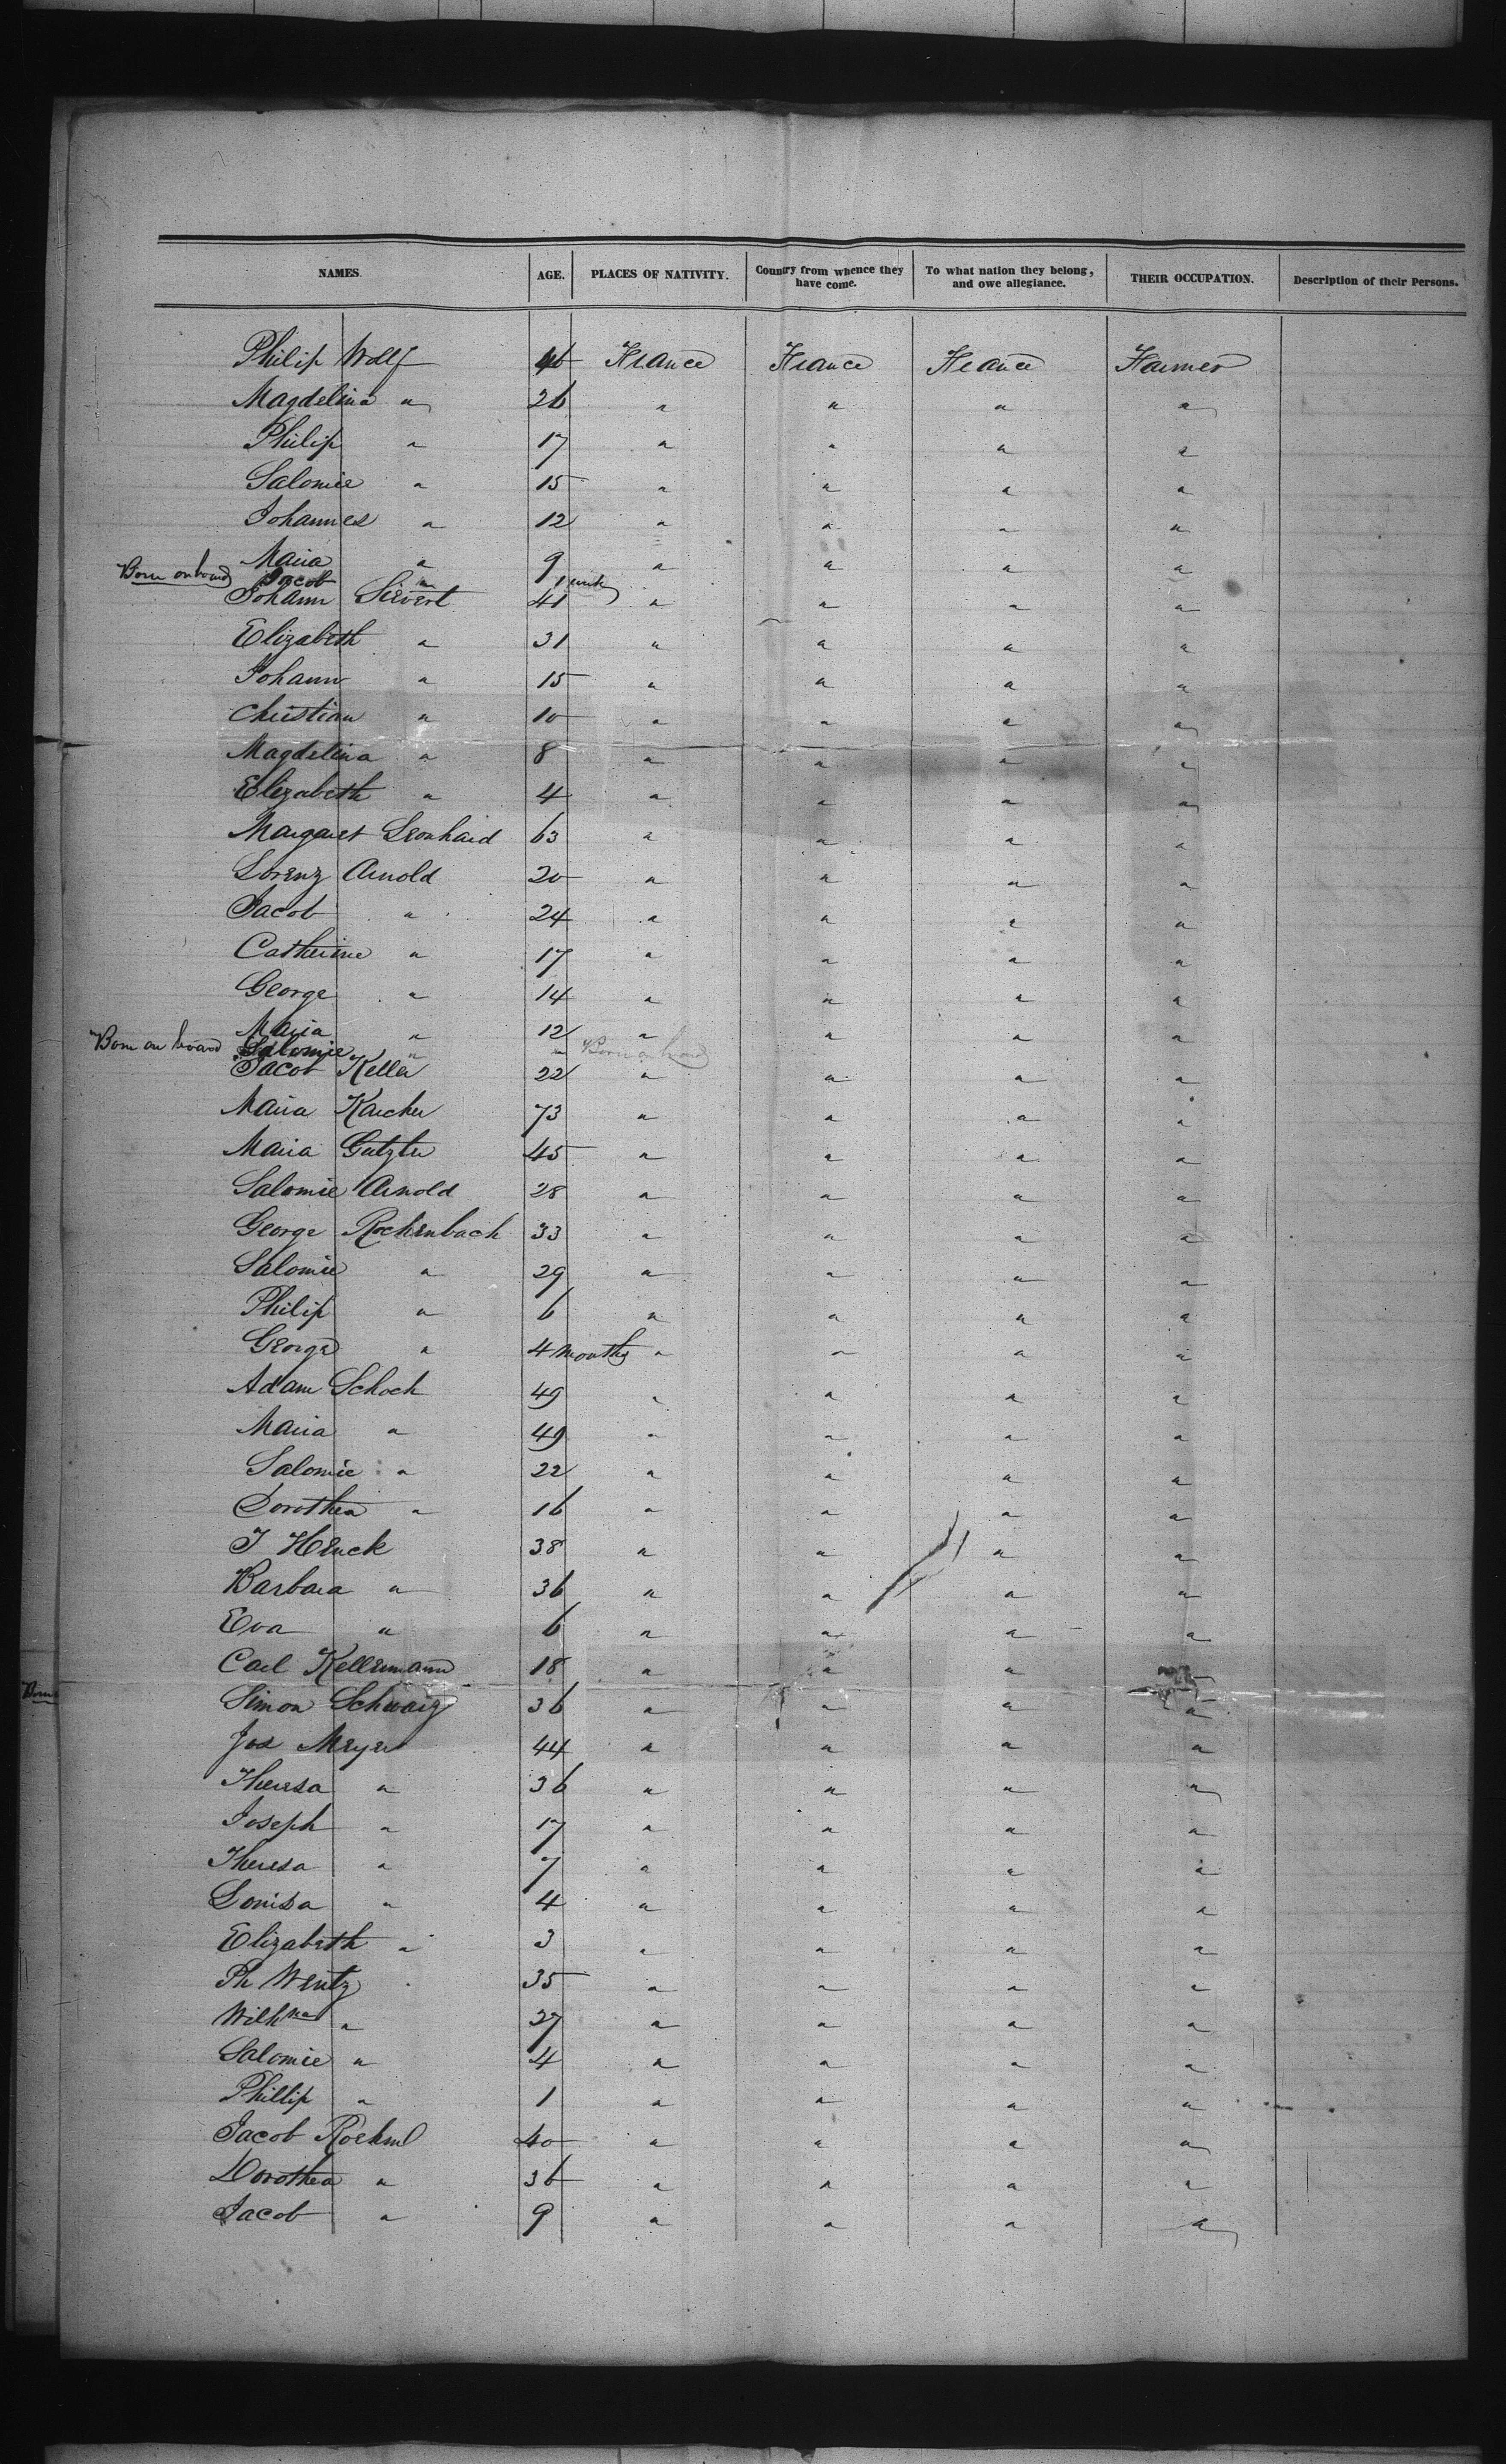 NAMES. AGE. PLACES OF NATIVITY. Country from whence they have come. To what nation they belong, and owe allegiance. THEIR OCCUPATION. Description of their Persons.
Philip Wolf 46 France France France Farmer
Magdelina " 26 " " " "
Philip " 17 " " " "
Salomie " 15 " " " "
Johannes " 12 " " " "
Maria " 9 " " " "
Born on board Jacob " 1 week
Johann Sievert 41 " " " "
Elizabeth " 31 " " " "
Johann " 15 " " " "
Christian " 10 " " " "
Magdelina " 8 " " " "
Elizabeth " 4 " " " "
Margaret Leonhard 63 " " " "
Lorenz Arnold 20 " " " "
Jacob " 24 " " " "
Catherine " 17 " " " "
George " 14 " " " "
Maria " 12 " " " "
Born on board Salomie " " Born on board
Jacob Keller 22 " " " "
Maria Karcher 73 " " " "
Maria Gutzler 45 " " " "
Salomie Arnold 28 " " " "
George Rochenbach 33 " " " "
Salomie " 29 " " " "
Philip " 6 " " " "
George " 4 months " " " "
Adam Schoch 49 " " " "
Maria " 49 " " " "
Salomie " 22 " " " "
Dorothea " 16 " " " "
J Henck 38 " " " "
Barbara " 36 " " " "
Eva " 6 " " " "
Carl Kellermann 18 " " "
Simon Schwarz 36 " " " "
Jos Meyer 44 " " " "
Theresa " 36 " " " "
Joseph " 17 " " " "
Theresa " 7 " " " "
Louisa " 4 " " " "
Elizabeth " 3 " " " "
Ph Wentz 35 " " " "
Wilhma " 27 " " " "
Salomie " 4 " " " "
Phillip " 1 " " " "
Jacob Roehml 40 " " " "
Dorothea " 36 " " " "
Jacob " 9 " " " "
Born